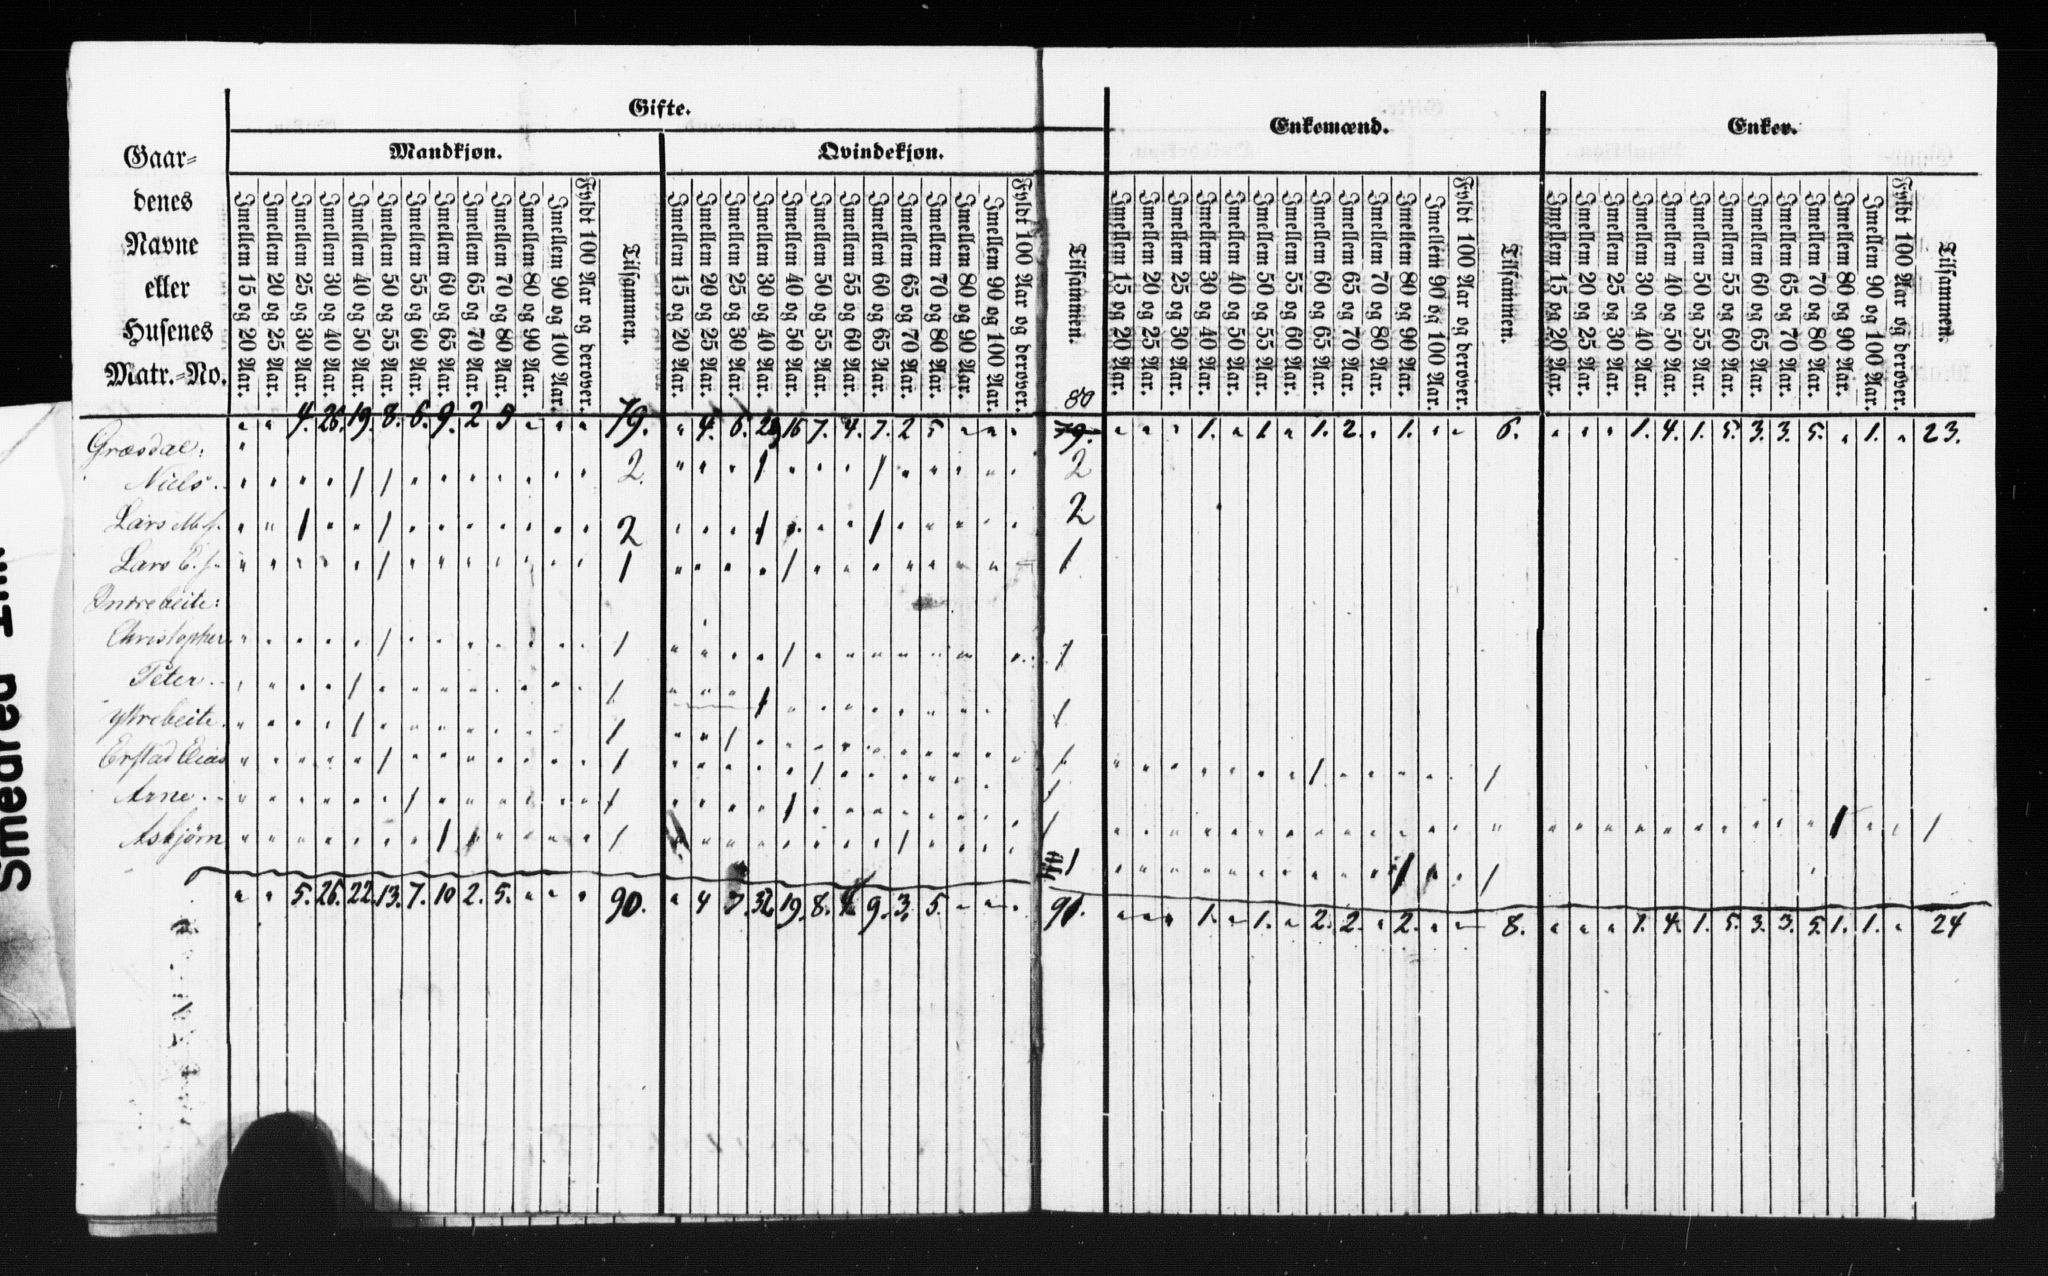 Gifte.
Enkemænd.
Enker.
Mandkjøn.
Qvindekjøn.
Gaar=
denes
Navne
eller
Husenes
Matr.=No.
Imellem 15 og 20 Aar. Imellem 20 og 25 Aar. Imellem 25 og 30 Aar. Imellem 30 og 40 Aar. Imellem 40 og 50 Aar. Imellem 50 og 55 Aar. Imellem 55 og 60 Aar. Imellem 60 og 65 Aar. Imellem 65 og 70 Aar. Imellem 70 og 80 Aar. Imellem 80 og 90 Aar. Imellem 90 og 100 Aar. Fyldt 100 Aar og derover. Tilsammen.
Imellem 15 og 20 Aar. Imellem 20 og 25 Aar. Imellem 25 og 30 Aar. Imellem 30 og 40 Aar. Imellem 40 og 50 Aar. Imellem 50 og 55 Aar. Imellem 55 og 60 Aar. Imellem 60 og 65 Aar. Imellem 65 og 70 Aar. Imellem 70 og 80 Aar. Imellem 80 og 90 Aar. Imellem 90 og 100 Aar. Fyldt 100 Aar og derover. Tilsammen.
Imellem 15 og 20 Aar. Imellem 20 og 25 Aar. Imellem 25 og 30 Aar. Imellem 30 og 40 Aar. Imellem 40 og 50 Aar. Imellem 50 og 55 Aar. Imellem 55 og 60 Aar. Imellem 60 og 65 Aar. Imellem 65 og 70 Aar. Imellem 70 og 80 Aar. Imellem 80 og 90 Aar. Imellem 90 og 100 Aar. Fyldt 100 Aar og derover. Tilsammen.
Imellem 15 og 20 Aar. Imellem 20 og 25 Aar. Imellem 25 og 30 Aar. Imellem 30 og 40 Aar. Imellem 40 og 50 Aar. Imellem 50 og 55 Aar. Imellem 55 og 60 Aar. Imellem 60 og 65 Aar. Imellem 65 og 70 Aar. Imellem 70 og 80 Aar. Imellem 80 og 90 Aar. Imellem 90 og 100 Aar. Fyldt 100 Aar og derover. Tilsammen.
80
" " 4. 26. 19. 8. 6. 9. 2 5 " " " 79. " 4. 6. 29 16 7. 4. 7. 2 5 " " " 79. " " " 1. " 1 " 1. 2. " 1. " " 6. " " " 1. 4. 1. 5. 3. 3. 5. " 1. " 23.
Græsdal:
Niels " " " " 1 1 " " " " " " " 2 " " " 1 " " " 1 " " " " " 2
Lars M.s. " " 1 " " 1 " " " " " " " 2 " " " 1 " " " 1 " " " " " 2
Lars E.s. " " " " " 1 " " " " " " " 1 " " " " 1 " " " " " " " " 1
Indrebeite:
Christopher " " " " " 1 " " " " " " " 1 " " " " 1 " " " " " " " " 1
Peter " " " " 1 " " " " " " " " 1 " " " 1 " " " " " " " " " 1
Yttrebeite " " " " 1 " " " " " " " " 1 " " 1 " " " " " " " " " " 1
Erstad Elias " " " " " 1 " " " " " " " 1 " " " " " 1 " " " " " " " 1 " " " " " " " 1 " " " " " 1
Arne " " " " " " 1 " " " " " " 1 " " " " 1 " " " " " " " " 1 " " " " " " " " " " " " " " " " " " " " " " " " " 1 " " 1
Asbjørn " " " " " " " 1 " " " " " 1 " " " " " " " " 1 " " " " 1 " " " " " " " " " " 1 " " 1
" " 5. 26. 22. 13. 7. 10 2. 5. " " " 90. " 4 7. 32 19. 8. 4. 9. 3. 5. " " " 91. " " " 1. " 1. " 2. 2. " 2. " " 8. " " " 1. 4. 1. 5. 3. 3. 5. 1. 1. " 24
Smedred